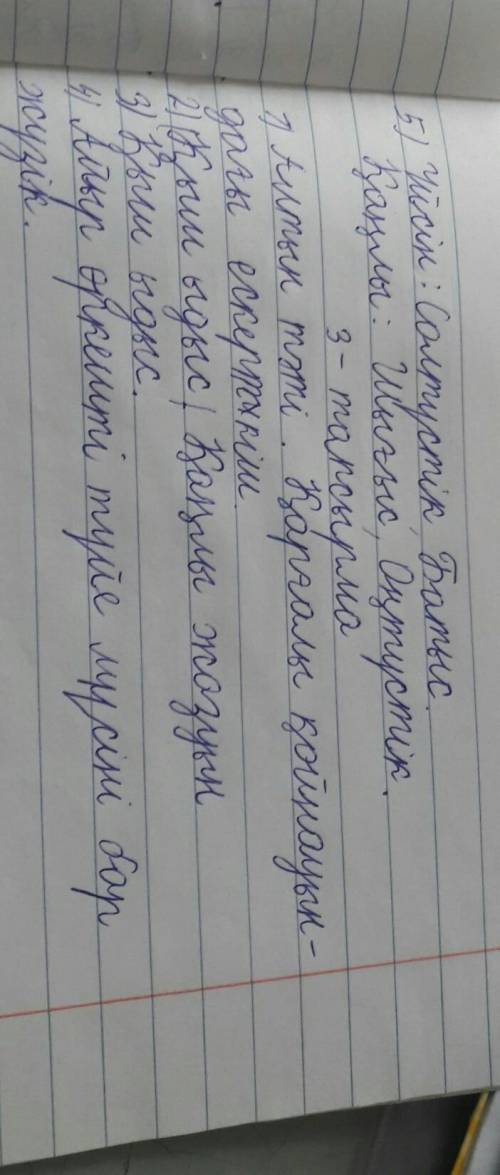 5) Үйсін: Солтүстік, Батыс.
Қаңлы: Шығыс, Оңтүстік.
3 - тапсырма
1) Алтын тәті. Қарғалы қойнауын-
дағы ескерткіш.
2) Қыш ыдыс | Қаңлы жазуын
3) Қыш ыдыс.
4) Айыр өркешті түйе мүсіні бар
жүзік.